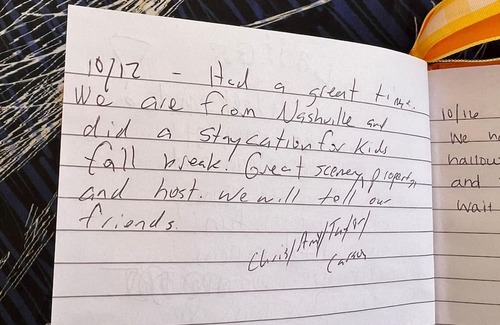 10/12 - Had a great time.
We are from Nashville and
did a staycation for kids
fall break. Great scenery, property,
and host. We will tell our
friends.
Chris/Amy/
10/16
We h
hallow
and
wait